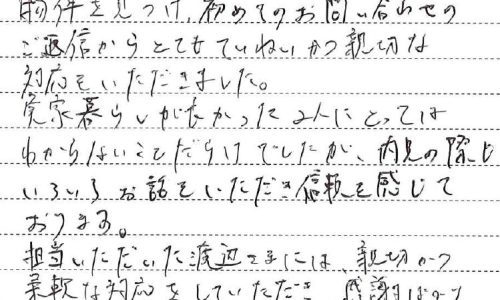 物件を見つけ、初めてのお問い合わせの
ご返信からとてもていねいかつ親切な
対応をいただきました。
実家暮らしが長かった2人にとっては
わからないことだらけでしたが、内見の際も
いろいろお話をいただき信頼を感じて
おります。
担当いただいた渡辺さまには、親切かつ
柔軟な対応をしていただき 感謝ばかり